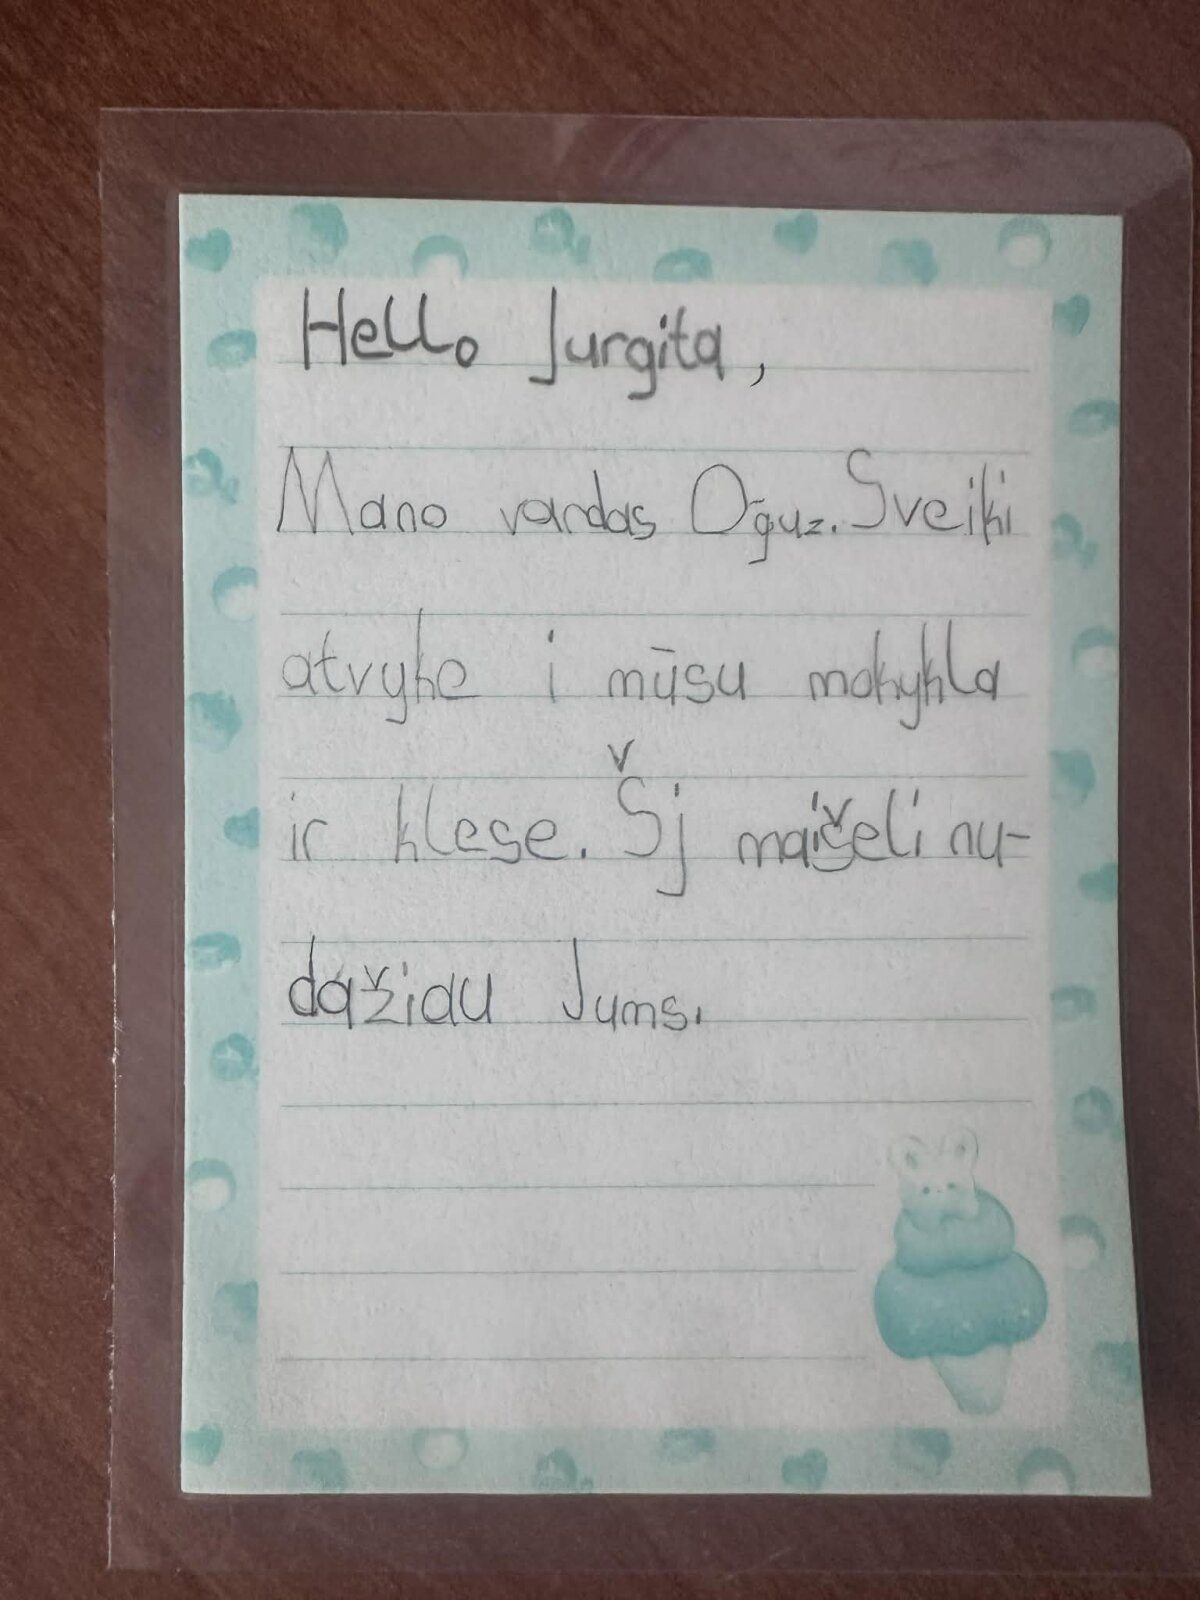 Hello Jurgita,
Mano vardas Oğuz. Sveiki
atvyke i mūsu mokykla
ir klese. Šj maišeli nu-
dažiau Jums.